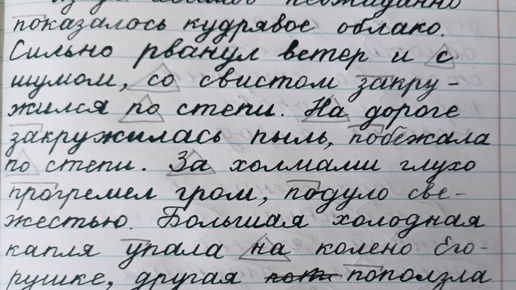 показалось кудрявое облако.
Сильно рванул ветер и с
шумом, со свистом закру-
жился по степи. На дороге
закружилась пыль, побежала
по степи. За холмами глухо
прогремел гром, подуло све-
жестью. Большая холодная
капля упала на колено Его-
рушке, другая поползла